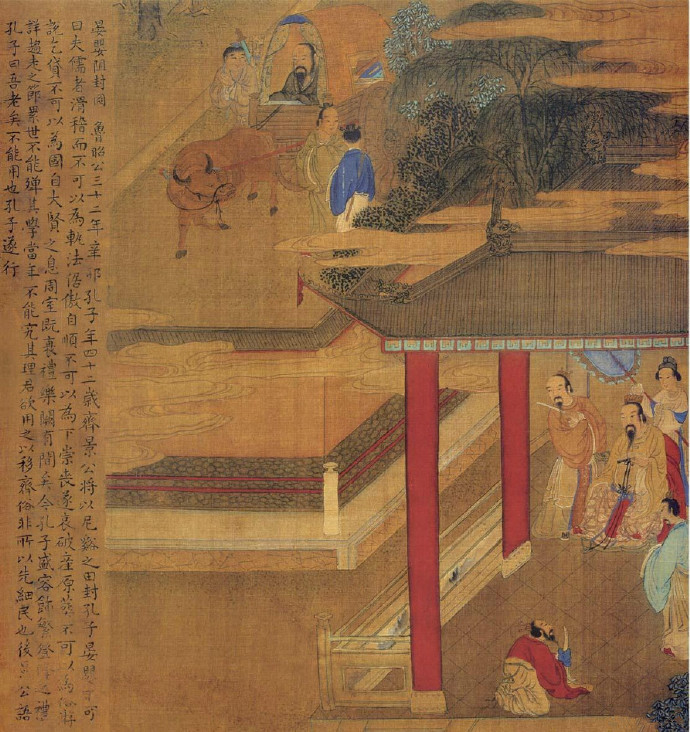 晏嬰阻封圖 魯昭公三十二年辛卯孔子年四十二歲齊景公將以尼谿之田封孔子晏嬰不可
曰夫儒者滑稽而不可以為軌法倨傲自順不可以為下崇喪遂哀破產厚葬不可以為俗游
說乞貸不可以為國自大賢之息周室既衰禮樂闕有間矣今孔子盛容飾繁登降之禮
詳趨走之節累世不能殫其學當年不能究其理君欲用之以移齊俗非所以先細民也後景公語
孔子曰吾老矣不能用也孔子遂行